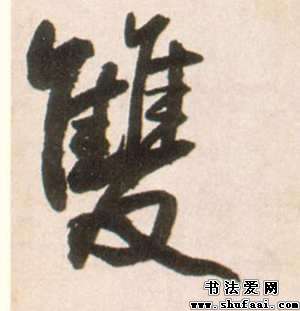 雙
书法爱网
www.shufaai.com